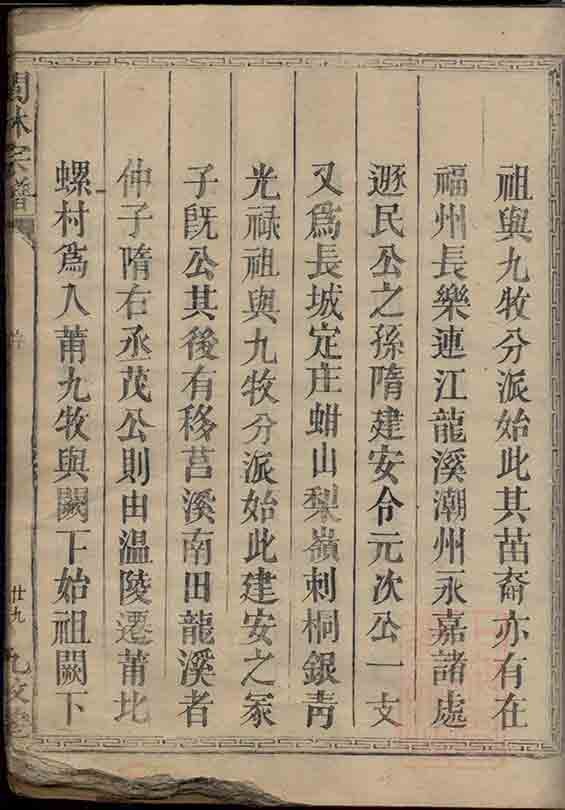 祖與九牧分派始此其苗裔亦有在
福州長樂連江龍溪潮州永嘉諸處
遯民公之孫隋建安令元次公一支
又為長城定庄蚶山梨嶺刺桐銀青
光祿祖與九牧分派始此建安之冢
子旣公其後有移莒溪南田龍溪者
仲子隋右丞茂公則由溫陵遷莆北
螺村為入莆九牧與闕下始祖闕下
林宗譜
廿九
九牧堂